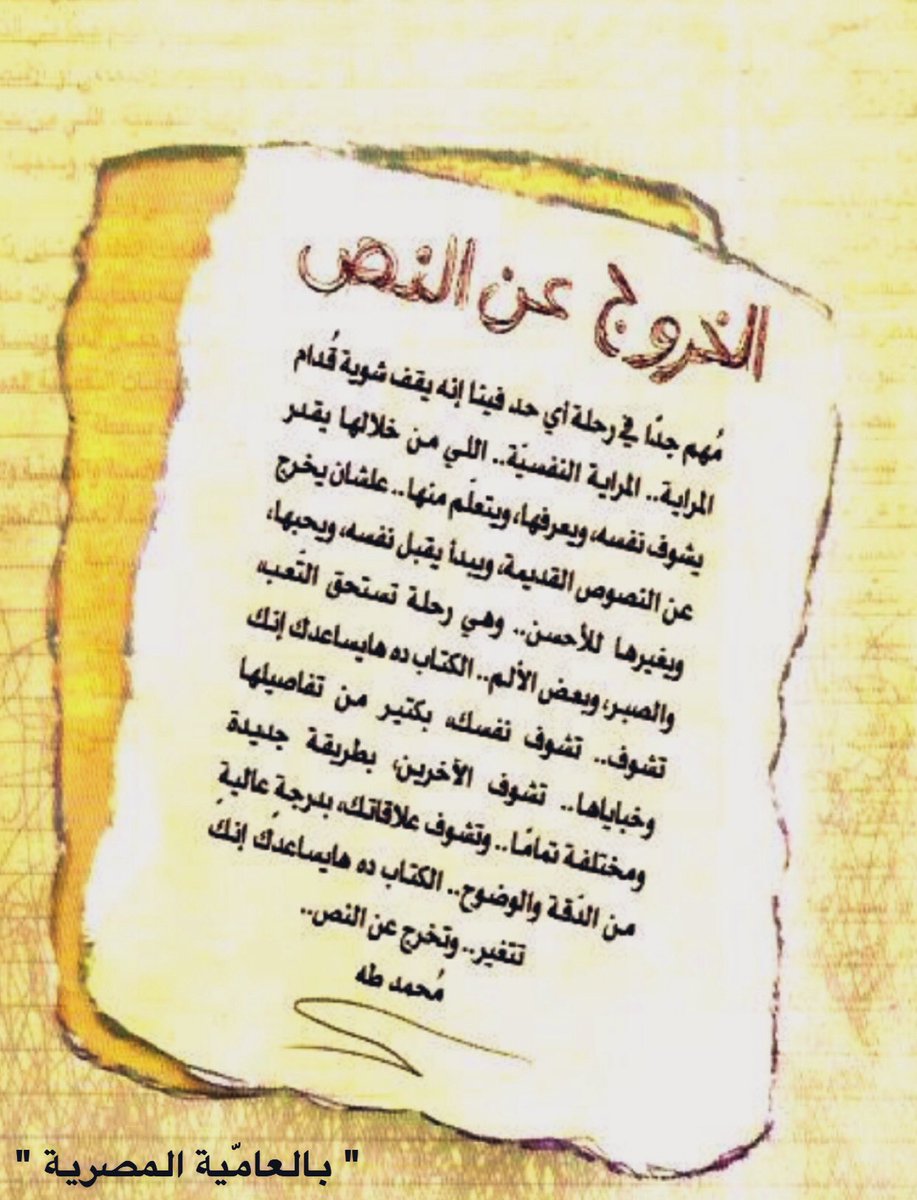 الخروج عن النص
مُهم جدًا في رحلة أي حد فينا إنه يقف شوية قُدام
المراية.. المراية النفسيّة.. اللي من خلالها يقدر
يشوف نفسه، ويعرفها، ويتعلّم منها.. علشان يخرج
عن النصوص القديمة، ويبدأ يقبل نفسه، ويحبها،
ويغيرها للأحسن.. وهي رحلة تستحق التّعب،
والصبر، وبعض الألم.. الكتاب ده هايساعدك إنك
تشوف.. تشوف نفسك، بكتير من تفاصيلها
وخباياها.. تشوف الآخرين، بطريقة جديدة
ومختلفة تمامًا.. وتشوف علاقاتك، بدرجةٍ عاليةٍ
من الدّقة والوضوح.. الكتاب ده هايساعدك إنك
تتغير.. وتخرج عن النص..
مُحمد طه
" بالعاميّة المصرية "